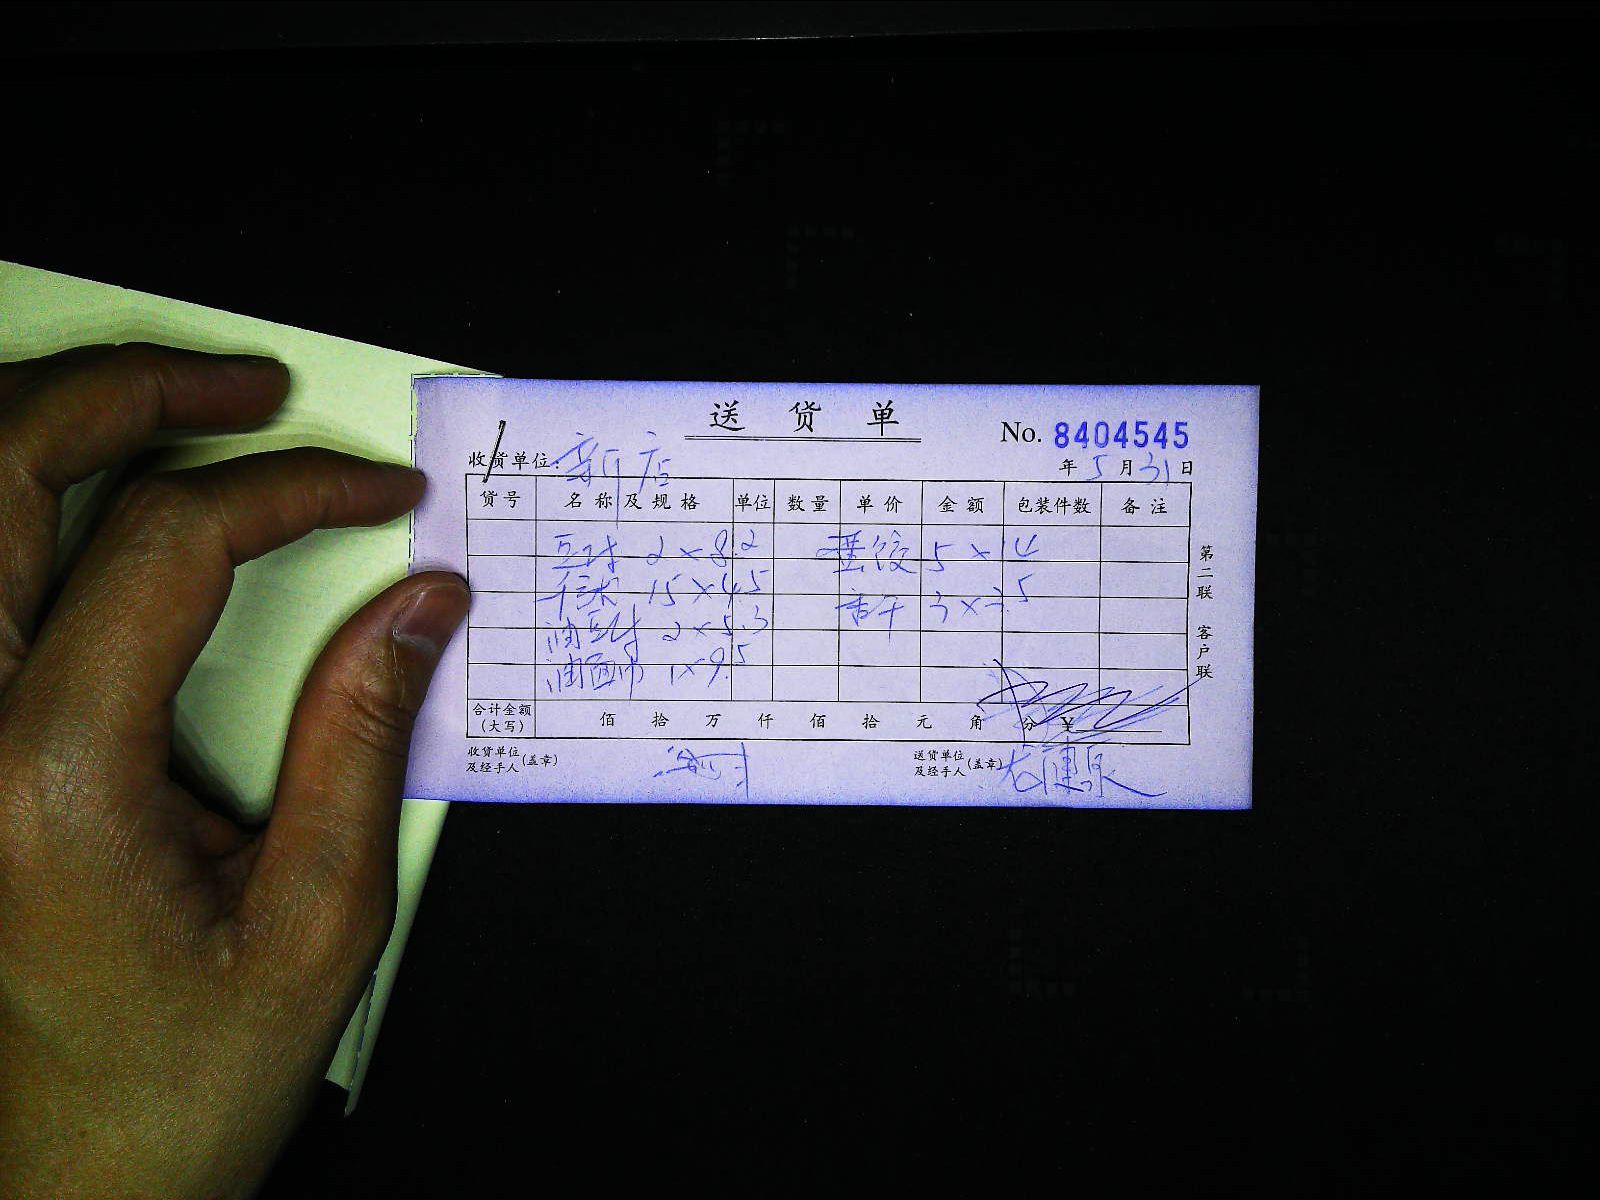 送货单
No. 8404545
收货单位: 新店
年 5 月 31 日
货号 名称及规格 单位 数量 单价 金额 包装件数 备注
2×8.2 5×14
千张 15×4.5 香干 3×3.5
油豆 2×5.3
油面 1×9.5
合计金额(大写) 佰 拾 万 仟 佰 拾 元 角 分 ¥
收货单位及经手人(盖章) 送货单位及经手人(盖章)
第二联 客户联